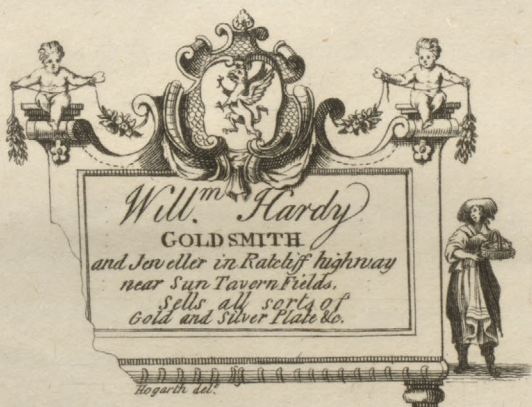 Will.m Hardy
GOLDSMITH
and Jeweller in Ratcliff highway
near Sun Tavern Fields.
Sells all sorts of
Gold and Silver Plate &c.
Hogarth del.t